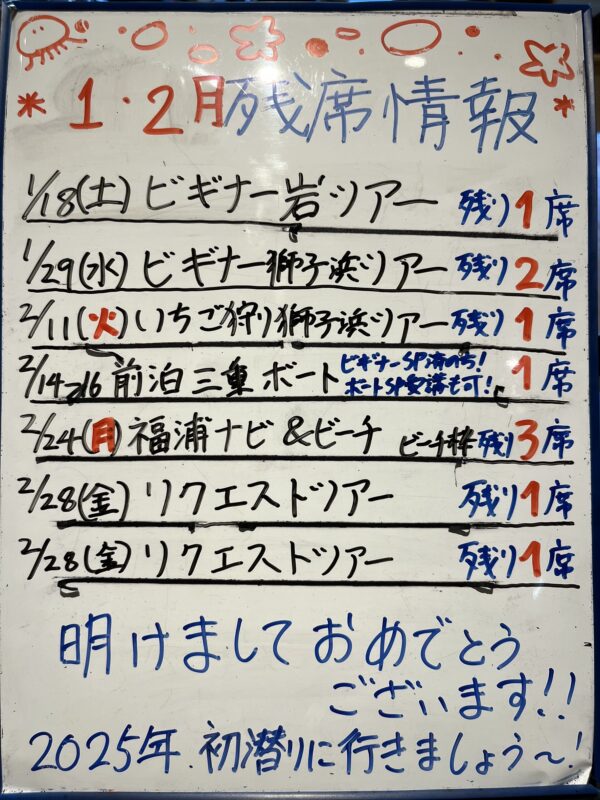 * 1・2月残席情報 *
1/18(土) ビギナー岩ツアー 残り1席
1/29(水) ビギナー獅子浜ツアー 残り2席
2/11(火) いちご狩り獅子浜ツアー 残り1席
2/14→16 前泊三重ボート ビギナーSP済のち! ボートSP受講も可! 1席
2/24(月) 福浦ナビ&ビーチ ビーチ枠 残り3席
2/28(金) リクエストツアー 残り1席
2/28(金) リクエストツアー 残り1席
明けましておめでとう
ございます!!
2025年.初潜りに行きましょう〜!